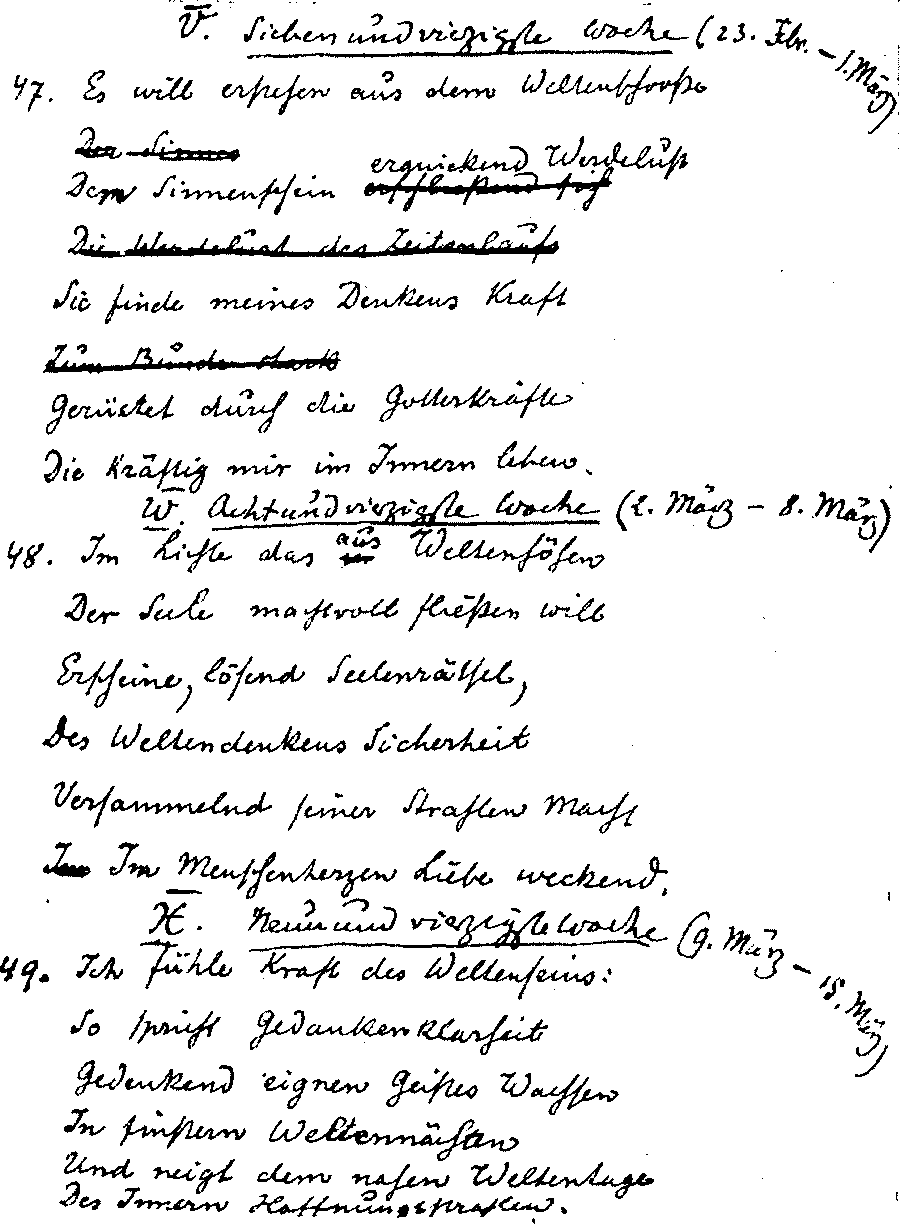 V̅. Siebenundvierzigste Woche (23. Febr. – 1. März)
47. Es will erstehen aus dem Weltenschoße
Der Sinnes
erquickend Werdelust
Dem Sinnenschein erschließend sich
Die Werdelust des Zeitenlaufs
Sie finde meines Denkens Kraft
Zum Bunde stark
Gerüstet durch die Gotteskräfte
Die kräftig mir im Innern leben.
W̅. Achtundvierzigste Woche (2. März – 8. März)
aus
48. Im Lichte das Weltenhöhen
Der Seele machtvoll fließen will
Erscheine, lösend Seelenrätsel,
Des Weltendenkens Sicherheit
Versammelnd seiner Strahlen Macht
Im Im Menschenherzen Liebe weckend.
X̅. Neunundvierzigste Woche (9. März – 15. März)
49. Ich fühle Kraft des Weltenseins:
So spricht Gedankenklarheit
Gedenkend eignen Geistes Wachsen
In finstern Weltennächten
Und neigt dem nahen Weltentage
Des Innern Hoffnungsstrahlen.